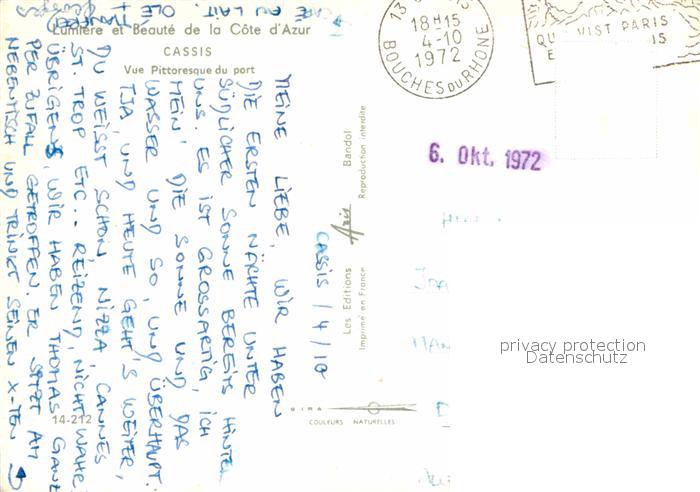 Lumière et Beauté de la Côte d'Azur
CASSIS
Vue Pittoresque du port
18H15
4-10
1972
BOUCHES DU RHONE
PARIS
6. Okt. 1972
CASSIS / 4 / 10
MEINE LIEBE, WIR HABEN
DIE ERSTEN NÄCHTE UNTER
SÜDLICHER SONNE BEREITS HINTER
UNS. ES IST GROSSARTIG, ICH
MEIN' DIE SONNE UND DAS
WASSER UND SO, UND ÜBERHAUPT.
TJA, UND HEUTE GEHT'S WEITER,
DU WEISST SCHON, NIZZA, CANNES
ST. TROP ETC.. REIZEND, NICHT WAHR
ÜBRIGENS, WIR HABEN THOMAS GANZ
PER ZUFALL GETROFFEN. ER SITZT AM
NEBENTISCH UND TRINKT SEINEN X-TEN →
CAFE AU LAIT. OLE!
Les Editions Aris Bandol
Imprimé en France Reproduction interdite
14-212
GIRA
COULEURS NATURELLES
privacy protection
Datenschutz